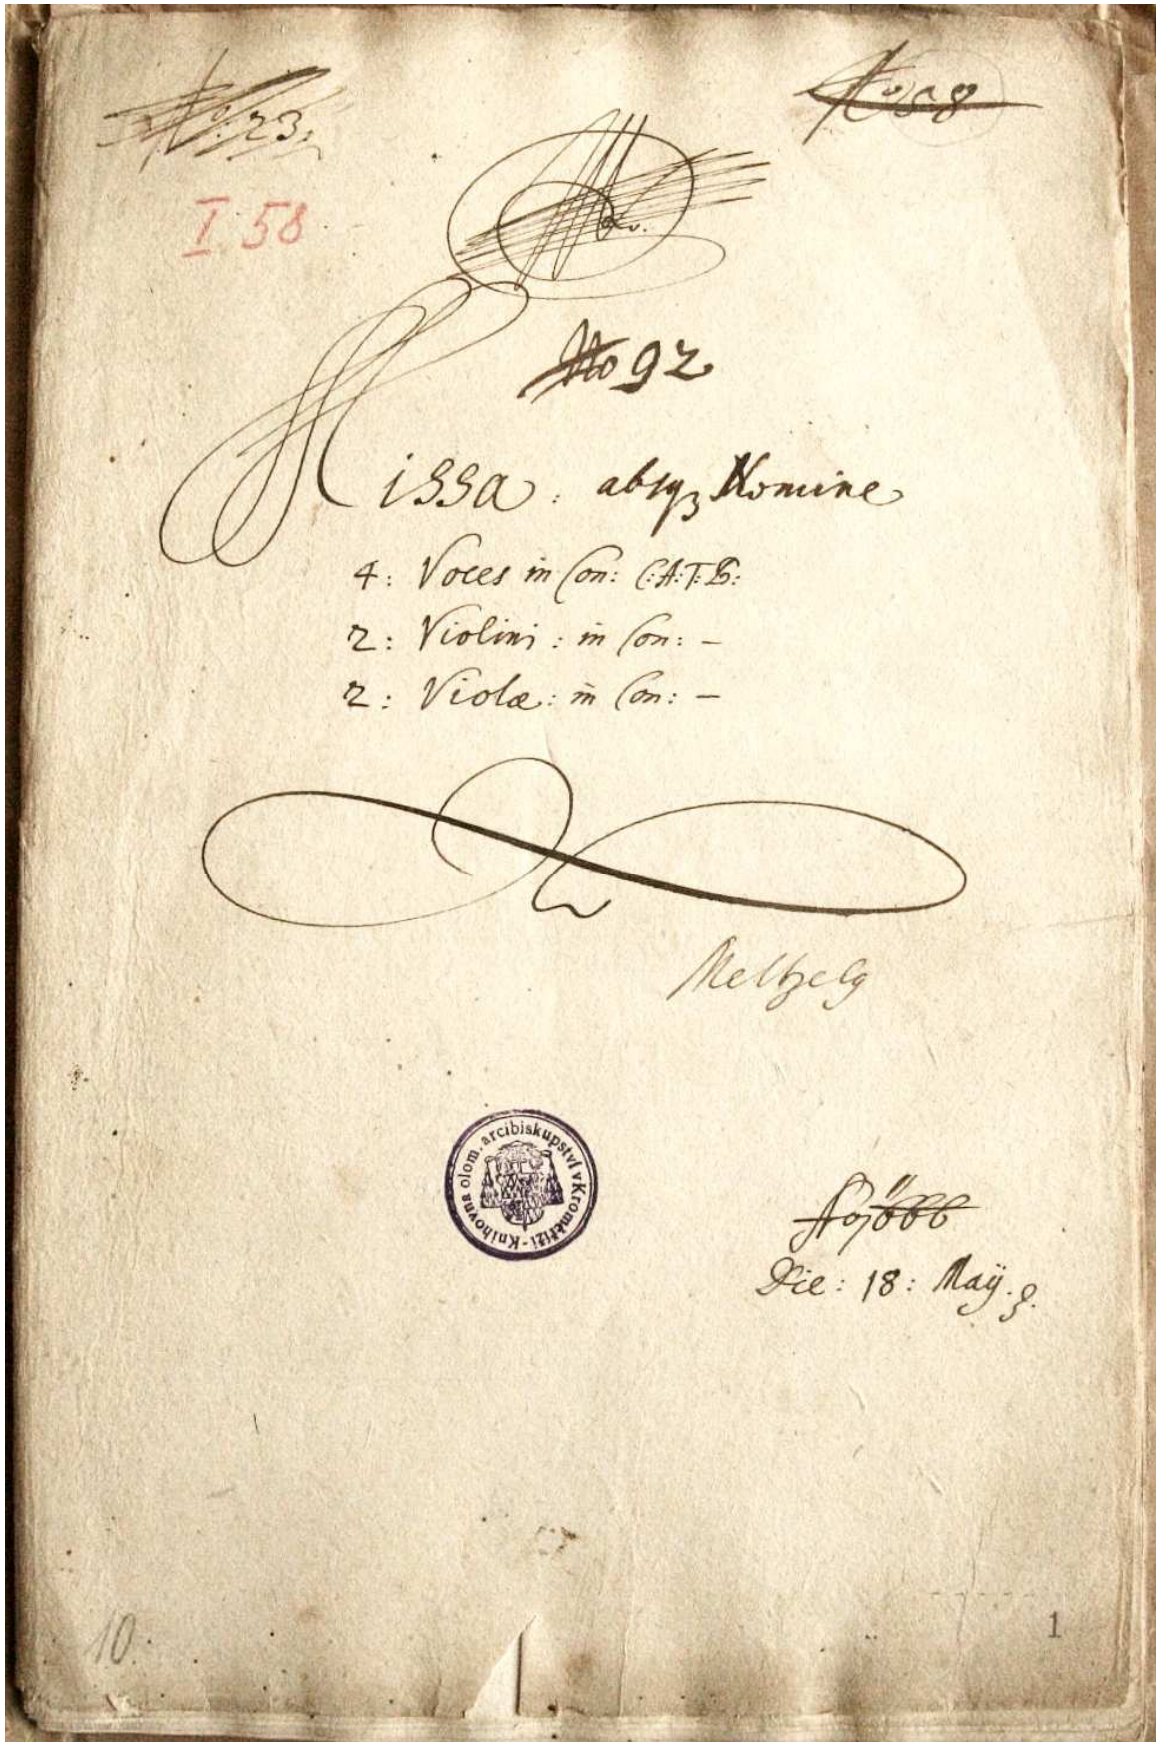 No: 23:
I 58
No 92
Missa: absqꝫ Nomine
4: Voces in Con: C:A:T:B:
2: Violini: in Con: –
2: Violæ: in Con: –
Knihovna olom. arcibiskupství v Kroměříži -
Die: 18: Maÿ.
10.
1